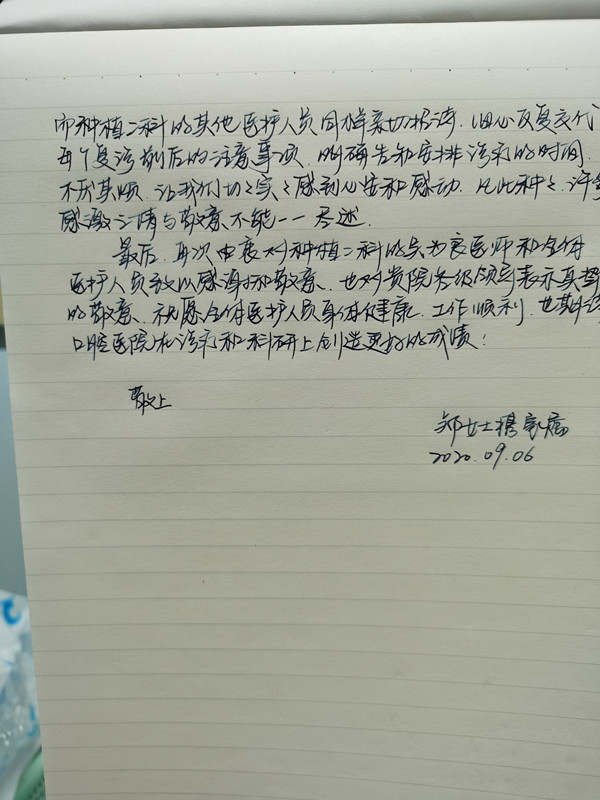 而种植二科的其他医护人员同样亲切热情、细心反复交代
每个复诊前后的注意事项、明确告知安排诊疗的时间、
不厌其烦、让我们切切实实感到心安和感动。凡此种种、许多
感激之情与敬意不能一一尽述。
最后、再次由衷对种植二科的吴为良医师和全体
医护人员致以感谢和敬意、也对贵院各级领导表示真挚
的敬意、祝愿全体医护人员身体健康、工作顺利、也期待
口腔医院在诊疗和科研上创造更好的成绩！
敬上
邹女士携家属
2020.09.06